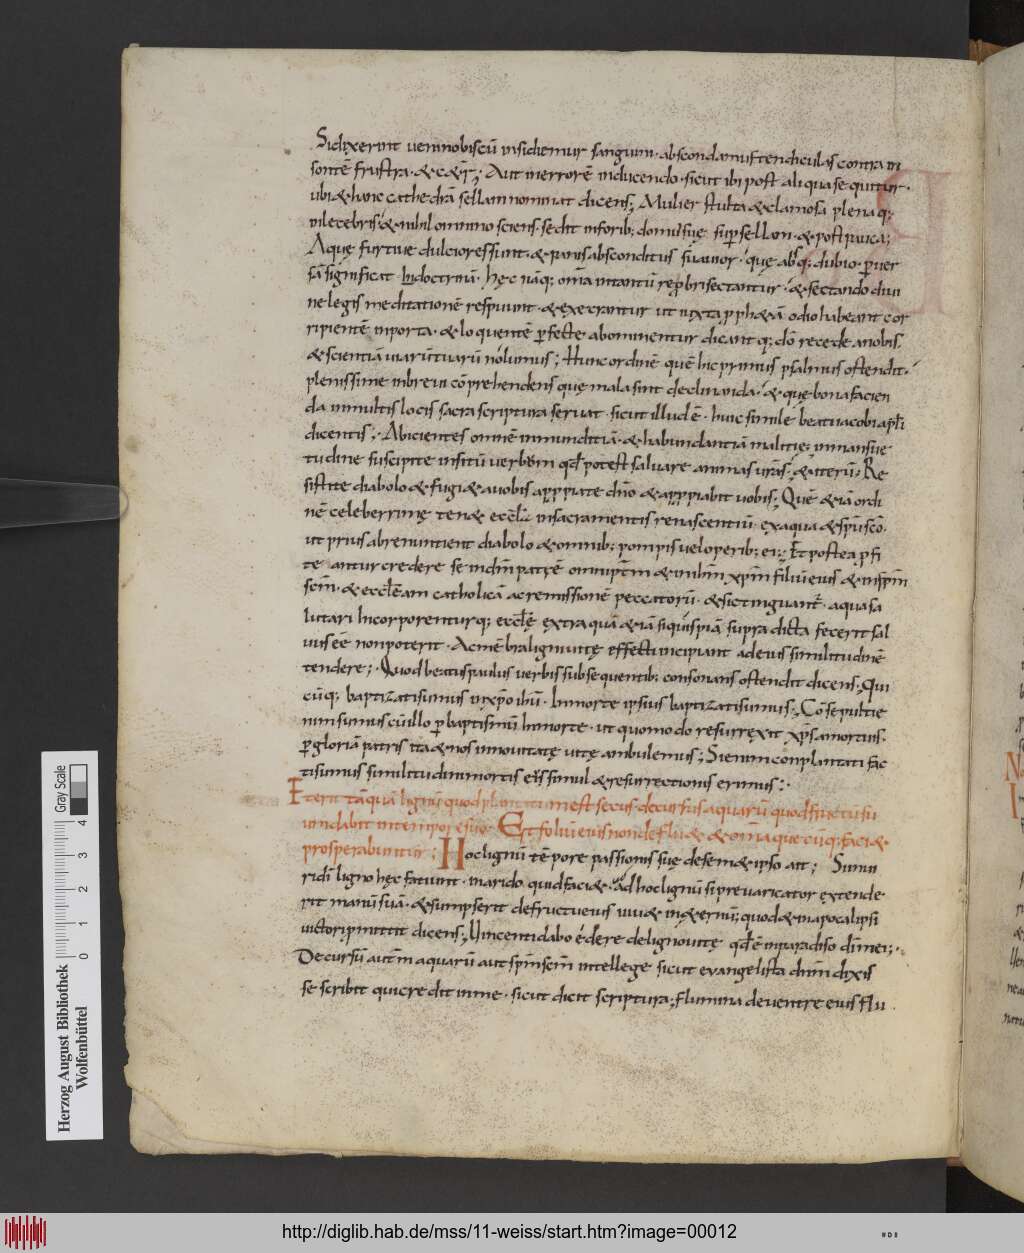 Sidixerint veninobiscū insidiemur sanguini· abscondamus tendiculas contra in
sontē frustra· &c&; Aut inerrorē inducendo· sicut ibi post aliqua sequitur·
ubi & hanc cathedrā sellam nominat dicens; Mulier stulta & clamosa plenaq;
inlecebris· & nihil omnino sciens· sedit inforib; domus suę sup sellam· & post pauca;
Aquę furtive dulciores sunt· & panis absconditus suavior· quę absq; dubio· puer
sā significat indoctrinā· hęc nāq; om̄a
ne legis meditationē respuunt· & exęcrantur ut iuxta pph&ā odio habeant cor
ripientē inporta· & loquentē pfecte abominentur dicant q; dō recede anobis·
& scientiā viarū tuarū nolumus; Hunc ordinē quē hic primus psalmus ostendit·
plenissime inbrevi cōprehendens quę mala sint declinanda· & quę bona facien
da inmultis locis sacra scriptura servat· sicut illud ē· huic simile beati iacobi apl̄i
dicentis; Abicientes omnē inmunditiā· & habundantiā malitię· inmansue
tudine suscipite insitū verbum qd potest salvare animas vrās· & iterū; Re
sistite diabolo & fugi& avobis appropiate dn̄o & appropiabit vobis; Quē & iā ordi
nē celeberrimę ten& eccl̄a insacramentis renascentiū· exaqua & spū scō·
ut prius abrenuntient diabolo & omnib; pompis vel operib; ei; Et postea pfi
teantur credere se indm̄ patrē omnip̄tem & inih̄m xp̄m filiū eius & insp̄m
scm̄· & eccl̄eam catholicā ac remissionē peccatorū· & sic tinguant· aqua sa
lutari Incorporenturq; eccl̄ę extra quā & iā siquispiā supra dicta fecerit sal
vus eē non poterit· Ac mēbra ligni vitę effecti incipiant ad eius similitudinē
tendere; Quod beatus paulus verbis subsequentib; consonans ostendit dicens; Qui
cūq; baptizati sumus inxp̄o ih̄u· Inmorte ipsius baptizati sumus; Cōsepulti e
nim sumus cū illo p baptismū Inmorte· ut quomodo resurrexit xp̄s amortuis·
p gloriā patris ita & nos innovitatę vitę ambulemus; Si enim conplantati fac
ti sumus similitudini mortis eius simul & resurrectionis erimus:
Eterit tāquā lignū quod plantatum est secus decursus aquarū quod fructū su
um dabit intempore suo· Et foliū eius non deflu& & om̄a quecūq; faci&
prosperabuntur; Hoc lignū tēpore passionis suę desem&ipso ait; Si inu
ridi ligno hęc faciunt· inarido quid faci&· Ad hoc lignū si prevaricator extende
rit manū suā· & sumpserit defructu eius vivit in&ernū; quod & inapocalipsi
victori pmittit dicens; Vincenti dabo edere deligno vitę qd ē inparadiso dī mei;
Decursū autm̄ aquarū aut spm̄ scm̄ intellege sicut evangelista dnm̄ dixis
se scribit qui credit inme· sicut dicit scriptura; flumina deventre eius flu
Herzog August Bibliothek
Wolfenbüttel
0 1 2 3 4
Gray Scale
http://diglib.hab.de/mss/11-weiss/start.htm?image=00012